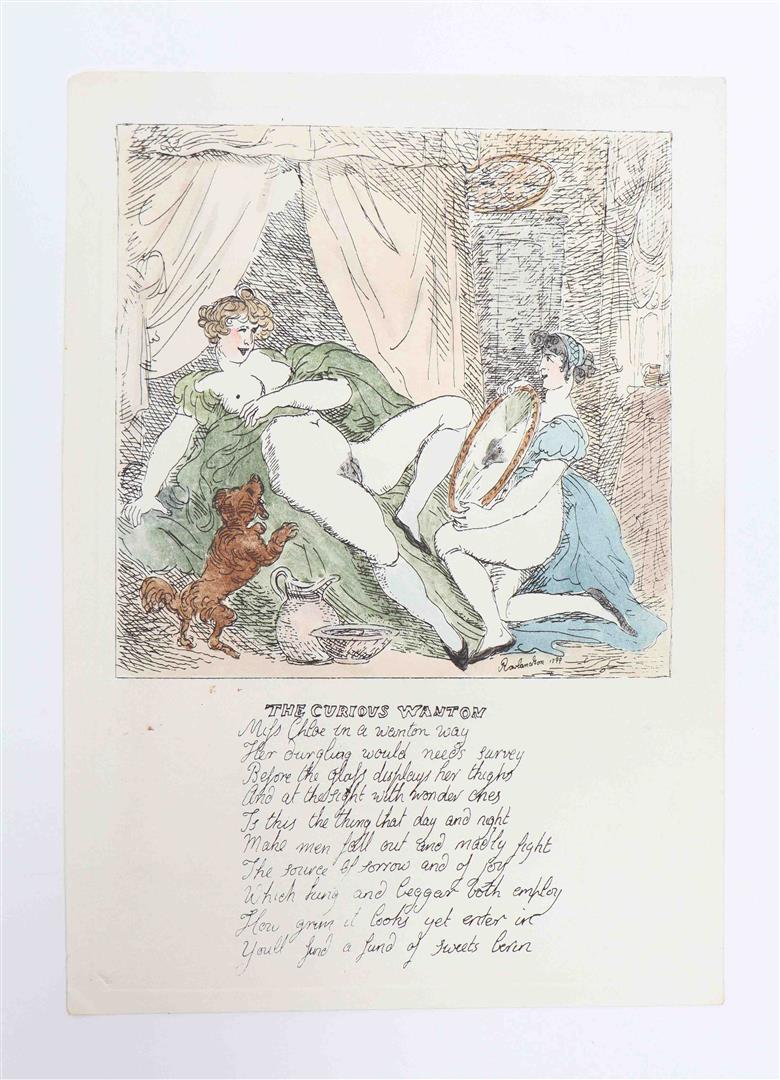 Rowlandson 1799
THE CURIOUS WANTON
Miss Chloe in a wanton way
Her durgling would needs survey
Before the glass displays her thighs
And at the sight with wonder cries
Is this the thing that day and night
Make men fall out and madly fight
The source of sorrow and of joy
Which king and beggar both employ
How grim it looks yet enter in
You'll find a fund of sweets